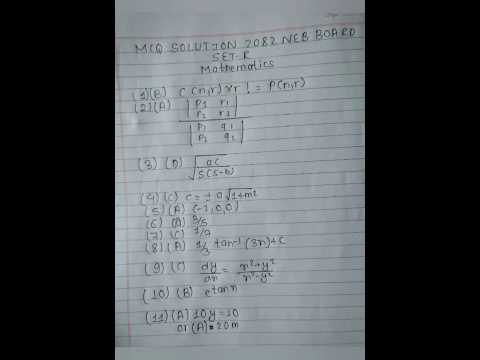 MCQ SOLUTION 2082 NEB BOARD
SET-R
Mathematics
(1)(B) C(n,r)×r! = P(n,r)
(2)(A) |p1 r1|
|p2 r2|
|p1 q1|
|p2 q2|
(3) (D) √ac
√s(s-b)
(4)(C) c = ± a√1+m²
(5)(A) (-1,0,0)
(6) (A)
(7) (C)
(8) (A) 1/3 tan⁻¹(3x)+c
(9) (C) dy/dx = x²+y²/x²-y²
(10) (B) etanx
(11)(A) 10y=10
or (A) 20m